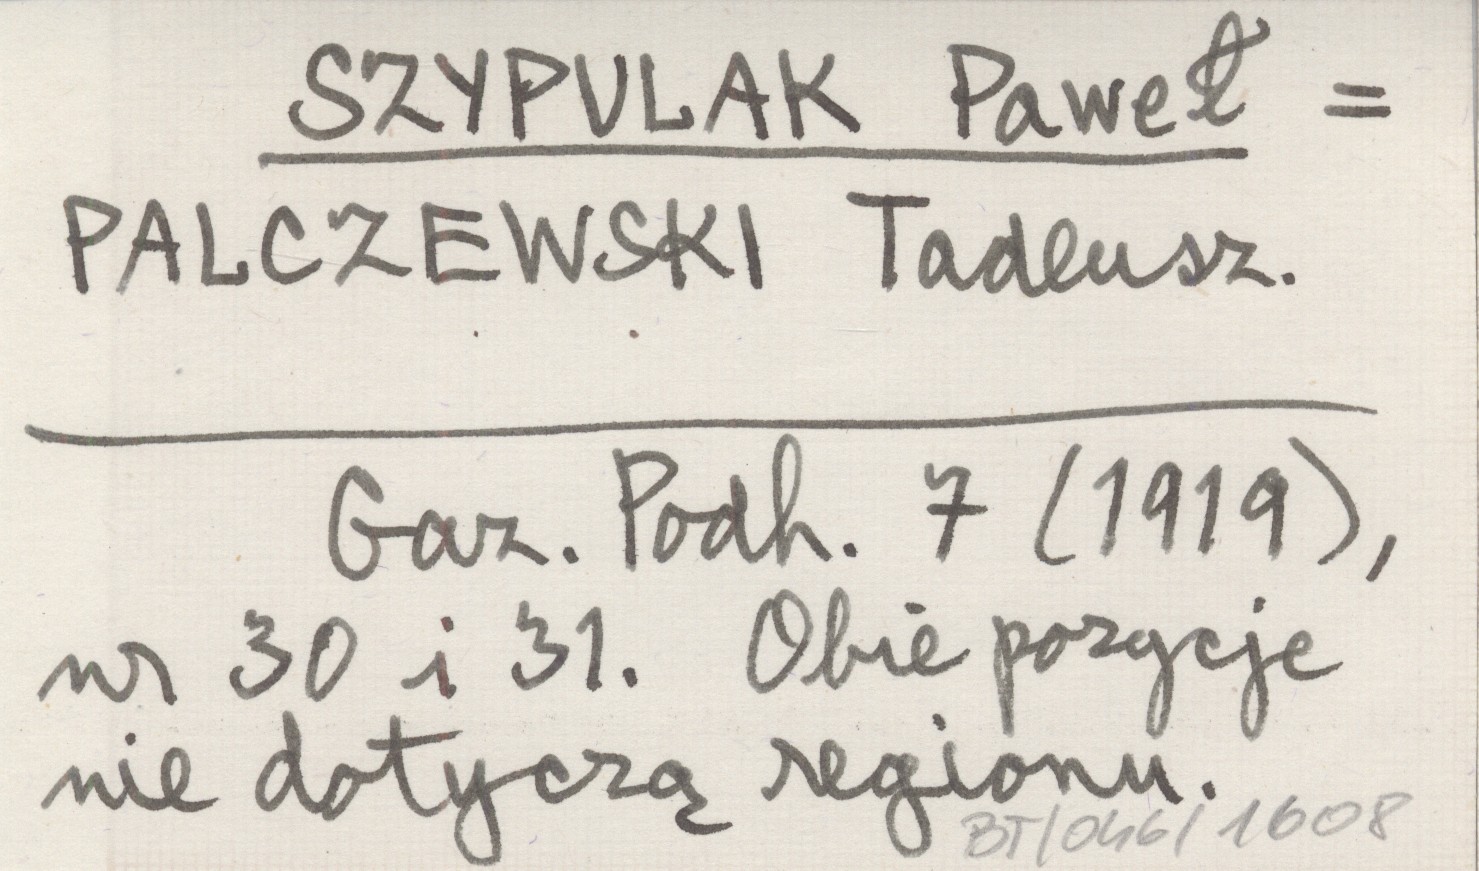 SZYPULAK Paweł =
PALCZEWSKI Tadeusz.
Gaz. Podh. 7 (1919),
nr 30 i 31. Obie pozycje
nie dotyczą regionu.
BT/046/1608